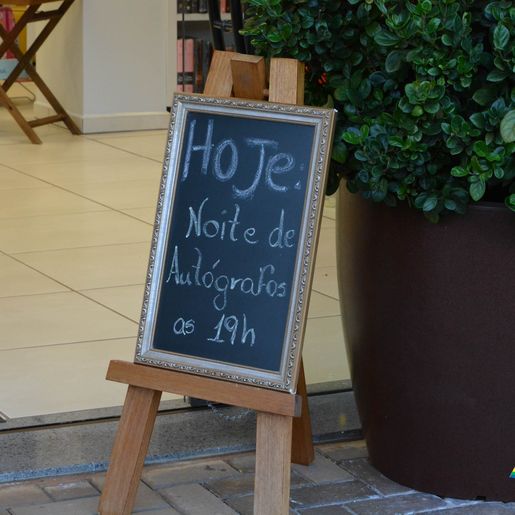 HoJe:
Noite de
Autógrafos
as 19h